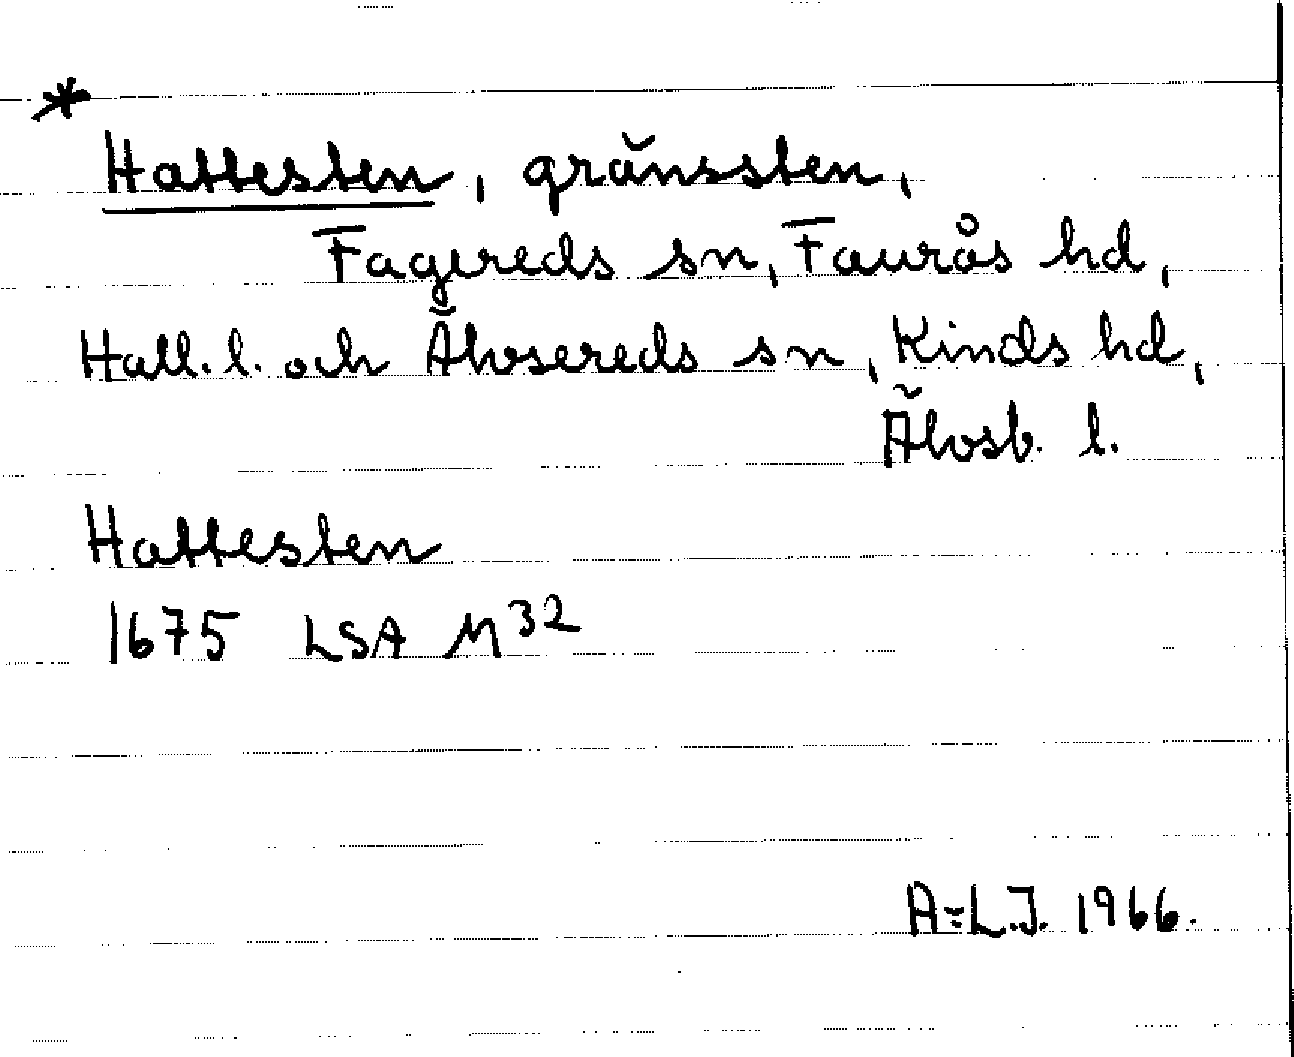 *
Hattesten, gränssten,
Fagereds sn, Faurås hd,
Hall. l. och Älvsereds sn, Kinds hd,
Älvsb. l.
Hattesten
1675 LSA M³²
A-L.J. 1966.